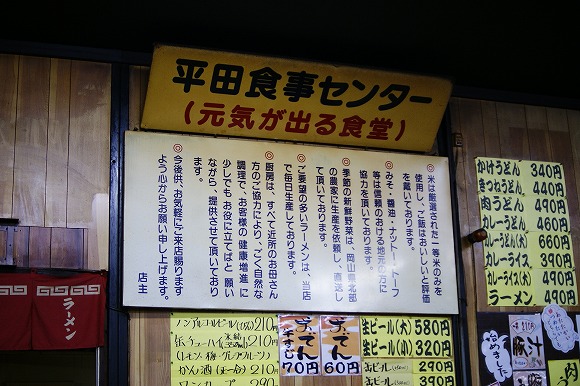 平田食事センター
(元気が出る食堂)
◎米は厳選された一等米のみを
使用、ご飯はおいしいと評価
を戴いております。
◎みそ・醤油・ナットー・トーフ
等は信頼のおける地元の方に
協力を頂いております。
◎季節の新鮮野菜は、岡山県北部
の農家に生産を依頼し、直送し
て頂いております。
◎ご要望の多いラーメンは、当店
で毎日生産しております。
◎厨房は、すべて近所のお母さん
方のご協力により、ごく自然な
調理で、お客様の健康増進に
少しでもお役に立てばと願い
ながら、提供させて頂いており
ます。
◎今後供、お気軽にご来店賜ります
よう心からお願い申し上げます。
店主
かけうどん 340円
きつねうどん 440円
肉うどん 490円
カレーうどん 460円
カレーライス(大) 660円
カレーライス(中) 390円
カレーライス(小) 490円
ラーメン 490円
ラーメン
ノンアルコールビール 210円
缶チューハイ 210円
(レモン・梅・グレープフルーツ)
かん酒 210円
ワンカップ 290
おでん
牛すじ 70円
おでん
60円
生ビール(大) 580円
生ビール(小) 320円
缶ビール 290円
豚汁